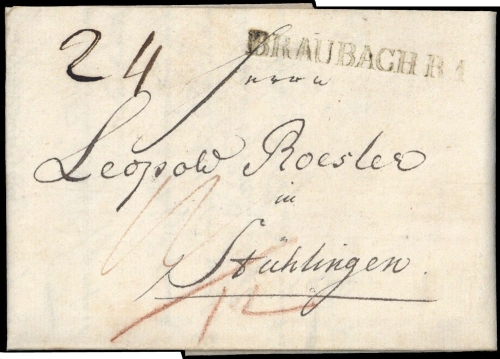 24
BRAUBACH R 1
Herrn
Leopold Roesler
in
Stühlingen.